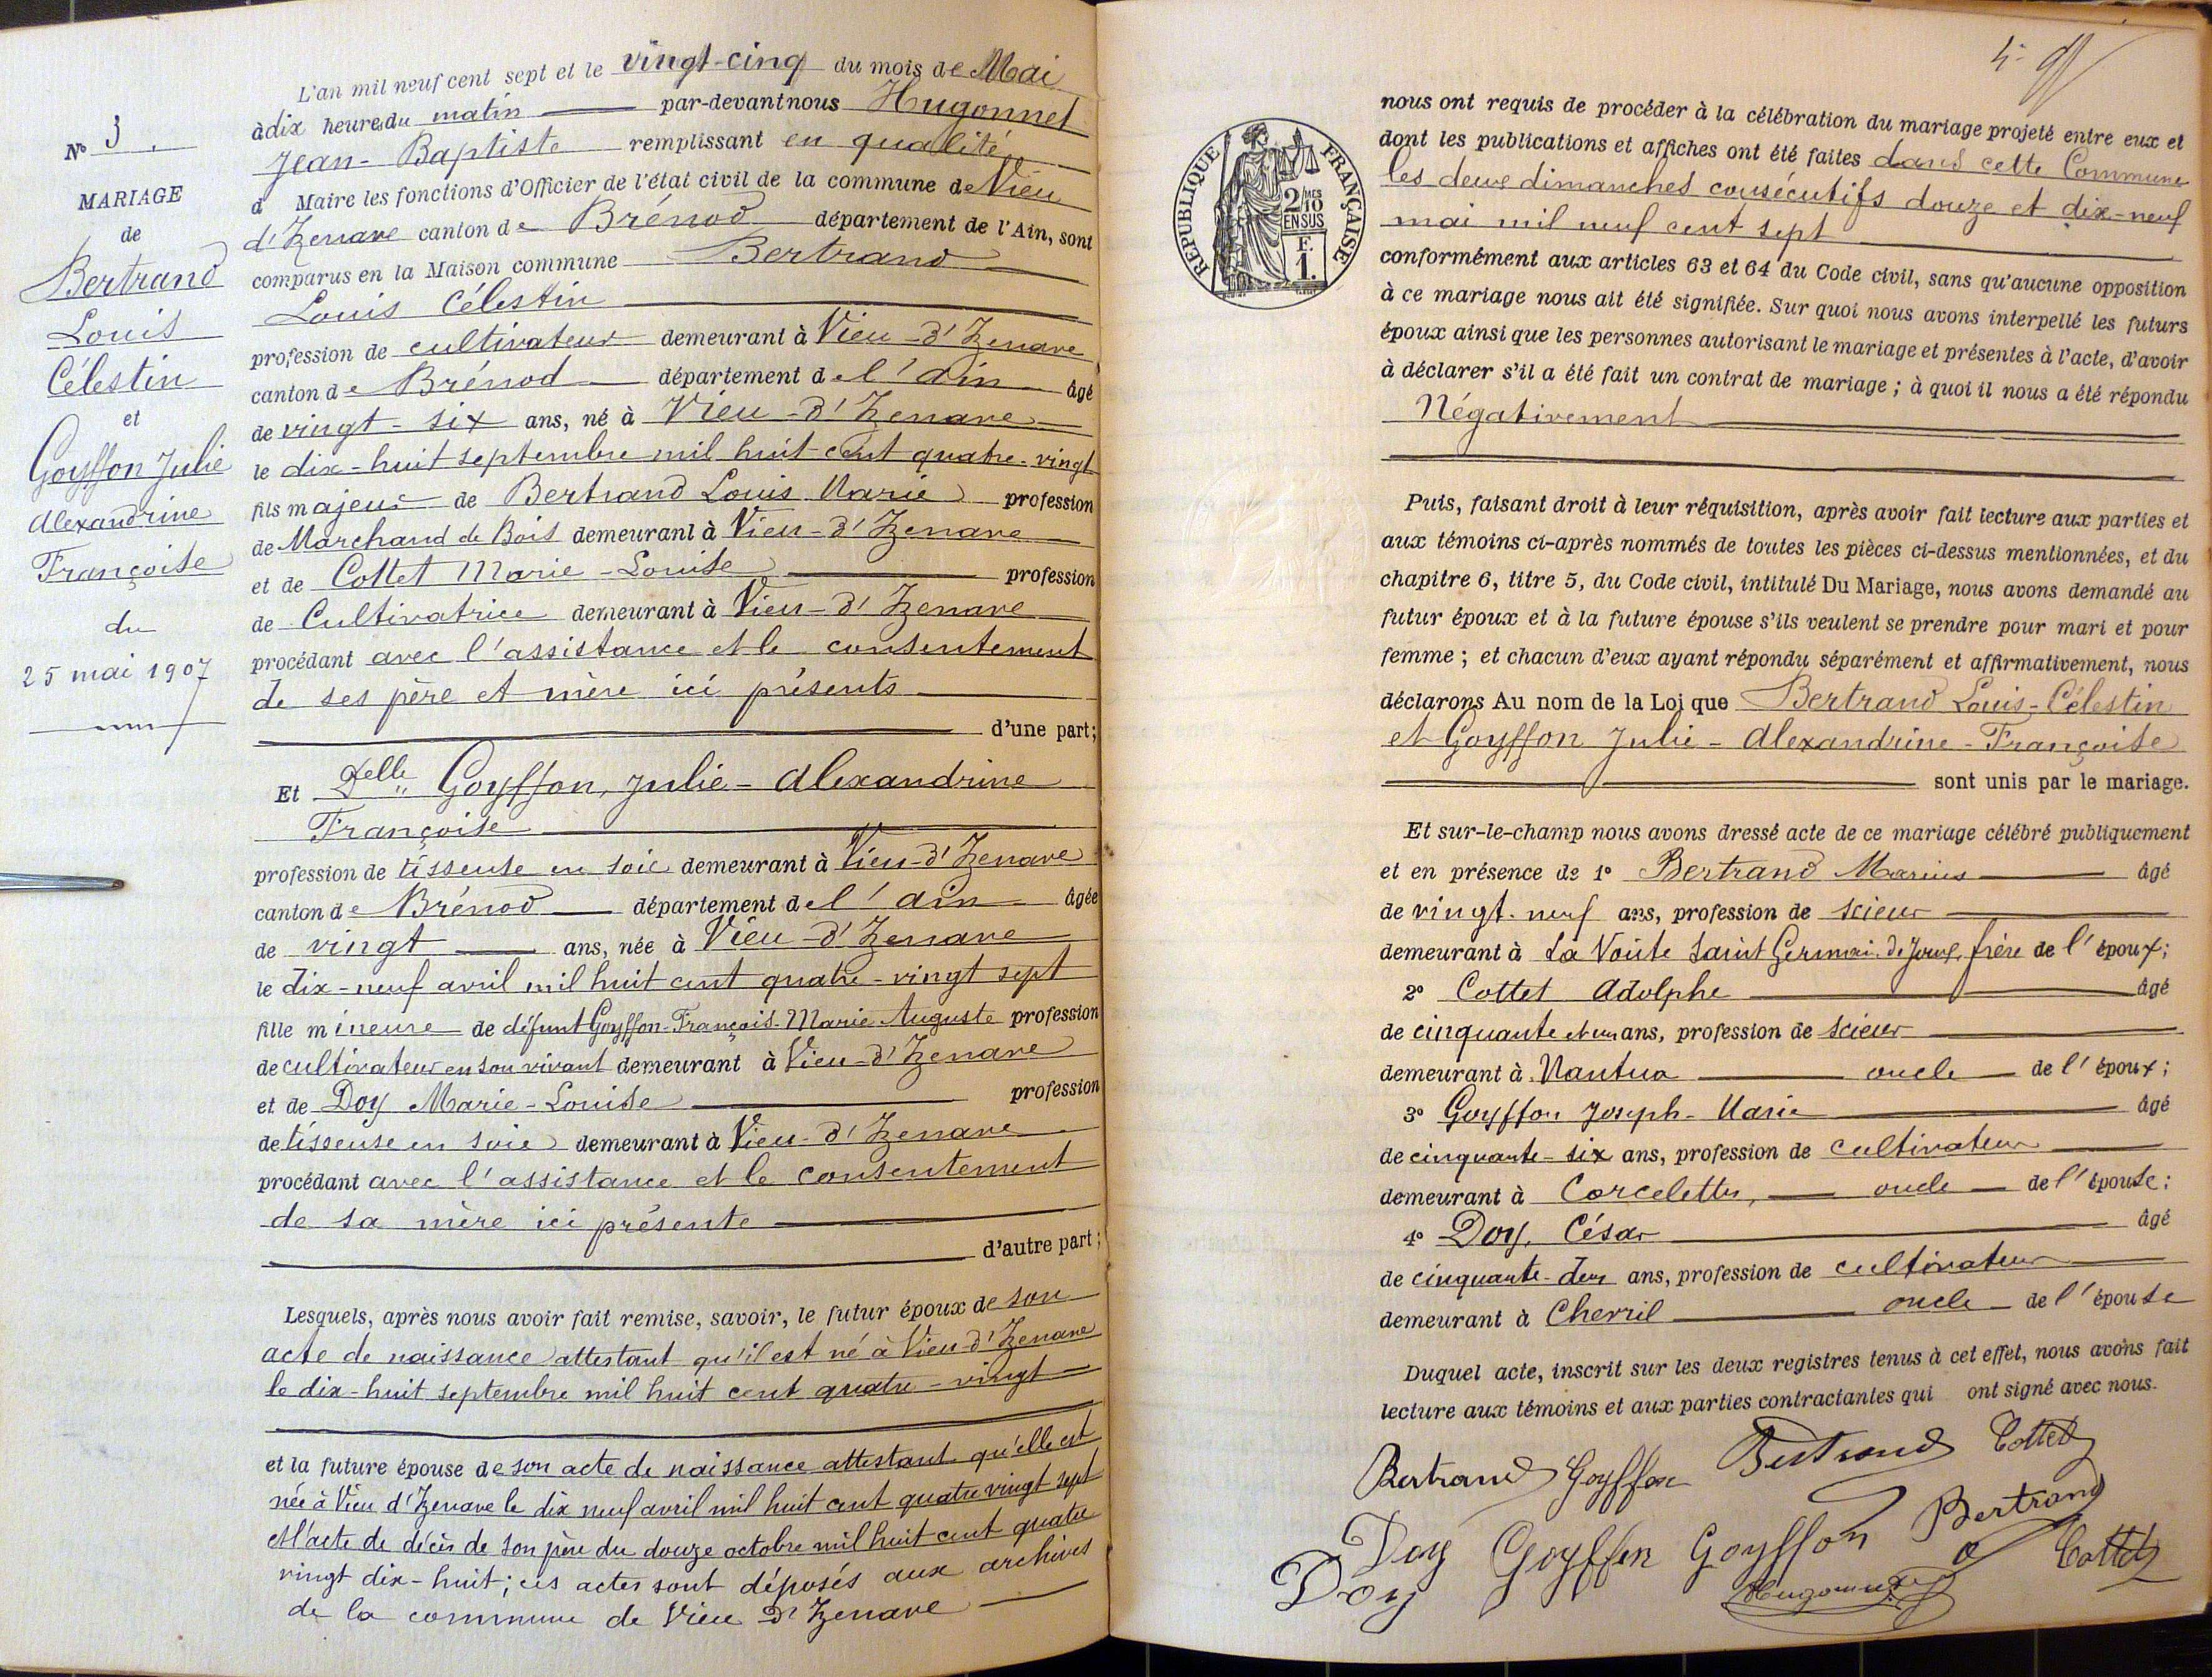 N° 3.
MARIAGE
de
Bertrand
Louis
Célestin
et
Goyffon Julie
Alexandrine
Françoise
du
25 mai 1907
L'an mil neuf cent sept et le vingt-cinq du mois de Mai
à dix heures du matin par-devant nous Hugonnet
Jean-Baptiste remplissant en qualité
d Maire les fonctions d'Officier de l'état civil de la commune de Vieu
d'Izenave canton de Brénod département de l'Ain, sont
comparus en la Maison commune Bertrand
Louis Célestin
profession de cultivateur demeurant à Vieu-d'Izenave
canton de Brénod département de l'Ain âgé
de vingt-six ans, né à Vieu-d'Izenave
le dix-huit septembre mil huit cent quatre-vingt
fils majeur de Bertrand Louis Marie profession
de Marchand de Bois demeurant à Vieu-d'Izenave
et de Cottet Marie-Louise profession
de Cultivatrice demeurant à Vieu-d'Izenave
procédant avec l'assistance et le consentement
de ses père et mère ici présents
d'une part;
Et Delle Goyffon, Julie-Alexandrine
Françoise
profession de tisseuse en soie demeurant à Vieu-d'Izenave
canton de Brénod département de l'Ain âgée
de vingt ans, née à Vieu-d'Izenave
le dix-neuf avril mil huit cent quatre-vingt sept
fille mineure de défunt Goyffon-François-Marie-Auguste profession
de cultivateur en son vivant demeurant à Vieu-d'Izenave
et de Doy Marie-Louise profession
de tisseuse en soie demeurant à Vieu-d'Izenave
procédant avec l'assistance et le consentement
de sa mère ici présente
d'autre part;
Lesquels, après nous avoir fait remise, savoir, le futur époux de son
acte de naissance attestant qu'il est né à Vieu-d'Izenave
le dix-huit septembre mil huit cent quatre-vingt
et la future épouse de son acte de naissance attestant qu'elle est
née à Vieu d'Izenave le dix neuf avril mil huit cent quatre vingt sept
et l'acte de décès de son père du douze octobre mil huit cent quatre
vingt dix-huit; ces actes sont déposés aux archives
de la commune de Vieu d'Izenave
RÉPUBLIQUE FRANÇAISE
2/10
EN SUS
F.
1.
nous ont requis de procéder à la célébration du mariage projeté entre eux et
dont les publications et affiches ont été faites dans cette Commune
les deux dimanches consécutifs douze et dix-neuf
mai mil neuf cent sept
conformément aux articles 63 et 64 du Code civil, sans qu'aucune opposition
à ce mariage nous ait été signifiée. Sur quoi nous avons interpellé les futurs
époux ainsi que les personnes autorisant le mariage et présentes à l'acte, d'avoir
à déclarer s'il a été fait un contrat de mariage; à quoi il nous a été répondu
Négativement
Puis, faisant droit à leur réquisition, après avoir fait lecture aux parties et
aux témoins ci-après nommés de toutes les pièces ci-dessus mentionnées, et du
chapitre 6, titre 5, du Code civil, intitulé Du Mariage, nous avons demandé au
futur époux et à la future épouse s'ils veulent se prendre pour mari et pour
femme; et chacun d'eux ayant répondu séparément et affirmativement, nous
déclarons Au nom de la Loi que Bertrand Louis-Célestin
et Goyffon Julie-Alexandrine-Françoise
sont unis par le mariage.
Et sur-le-champ nous avons dressé acte de ce mariage célébré publiquement
et en présence de 1° Bertrand Marius âgé
de vingt-neuf ans, profession de scieur
demeurant à La Voûte Saint Germain de Joux, frère de l'époux;
2° Cottet Adolphe âgé
de cinquante et un ans, profession de scieur
demeurant à Nantua oncle de l'époux;
3° Goyffon Joseph-Marie âgé
de cinquante-six ans, profession de cultivateur
demeurant à Corcelettes, oncle de l'épouse;
4° Doy, César âgé
de cinquante-deux ans, profession de cultivateur
demeurant à Chevril oncle de l'épouse
Duquel acte, inscrit sur les deux registres tenus à cet effet, nous avons fait
lecture aux témoins et aux parties contractantes qui ont signé avec nous.
Bertrand Goyffon Bertrand Cottet
Doy Goyffon Goyffon Bertrand
Doy Hugonnet Cottet